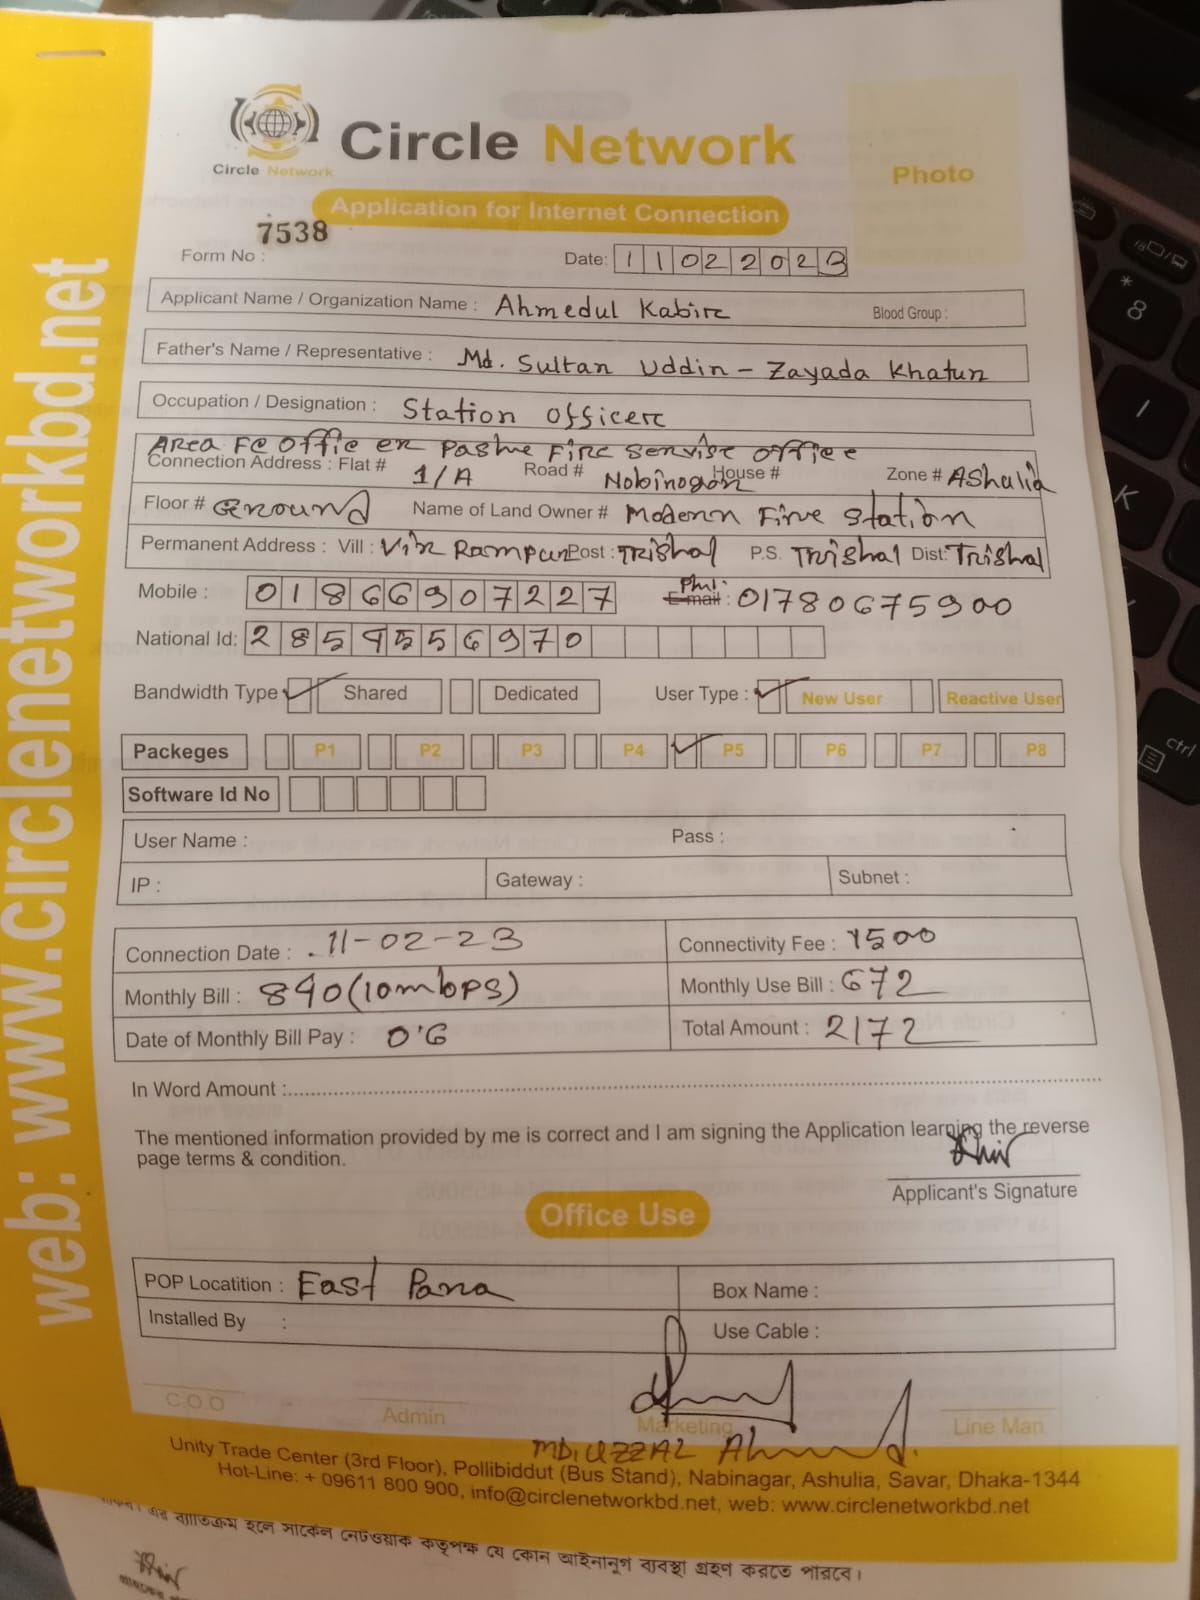 Circle Network
Circle Network
Photo
Application for Internet Connection
7538
Form No :
Date: 11022023
Applicant Name / Organization Name : Ahmedul Kabir
Blood Group :
Father's Name / Representative : Md. Sultan Uddin - Zayada Khatun
Occupation / Designation : Station Officer
Area Fe Offie er Pashe Fire Servise Office
Connection Address : Flat # 1/A Road # Nobinogor House # Zone # Ashalia
Floor # Ground Name of Land Owner # Modern Fire Station
Permanent Address : Vill : Vir Rampur Post : Trishal P.S. Trishal Dist: Trishal
Mobile : 01866907227 E-mail : 01780675900
National Id: 2859556970
Bandwidth Type Shared Dedicated User Type : New User Reactive User
Packeges P1 P2 P3 P4 P5 P6 P7 P8
Software Id No
User Name : Pass :
IP : Gateway : Subnet :
Connection Date : 11-02-23 Connectivity Fee : 1500
Monthly Bill : 840 (10mbps) Monthly Use Bill : 672
Date of Monthly Bill Pay : 06 Total Amount : 2172
In Word Amount :
The mentioned information provided by me is correct and I am signing the Application learning the reverse
page terms & condition.
Applicant's Signature
Office Use
POP Locatition : East Para Box Name :
Installed By : Use Cable :
C.O.O Admin Marketing Line Man
MD. UZZAL Ahmed
Unity Trade Center (3rd Floor), Pollibiddut (Bus Stand), Nabinagar, Ashulia, Savar, Dhaka-1344
Hot-Line: + 09611 800 900, info@circlenetworkbd.net, web: www.circlenetworkbd.net
web: www.circlenetworkbd.net
এর ব্যাতিক্রম হলে সার্কেল নেটওয়ার্ক কতৃপক্ষ যে কোন আইনানুগ ব্যবস্থা গ্রহণ করতে পারবে।